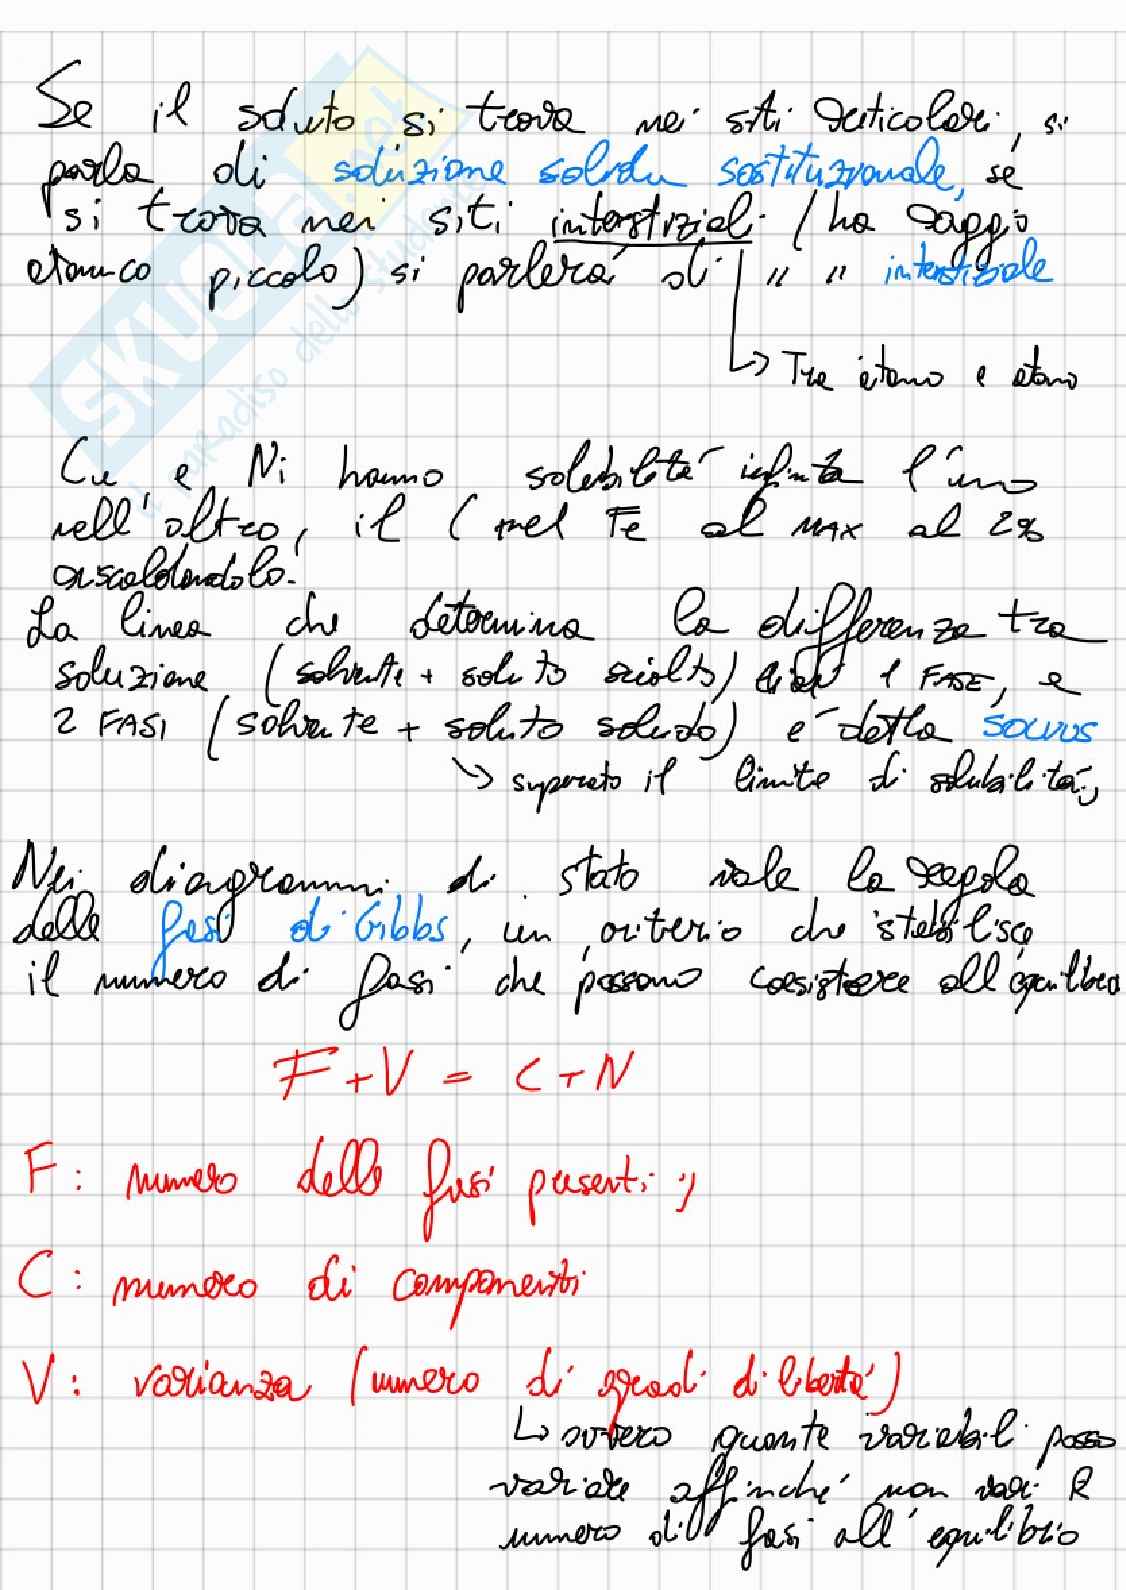 Se il soluto si trova nei siti reticolari, si
parla di soluzione solida sostituzionale, se
si trova nei siti interstiziali (ha raggio
atomico piccolo) si parlerá di " " interstiziale
↳ Tra atomo e atomo
Cu e Ni hanno solubilitá infinta l'uno
nell'altro, il C nel Fe al MAX al 2%
riscaldandolo.
La linea che determina la differenza tra
soluzione (solvente + soluto sciolto) 1 FASE, e
2 FASI (solvente + soluto solido) é detta SOLVUS
↳ superato il limite di solubilitá;
Nei diagrammi di stato vale la regola
delle fasi di Gibbs, un criterio che stabilisce
il numero di fasi che possono coesistere all'equilibrio
F + V = C + N
F: numero delle fasi presenti;
C: numero di componenti
V: varianza (numero di gradi di libertá)
↳ ovvero quante variabili posso
variare affinché non vari il
numero di fasi all'equilibrio
SKUOLA.net
il paradiso dello studente